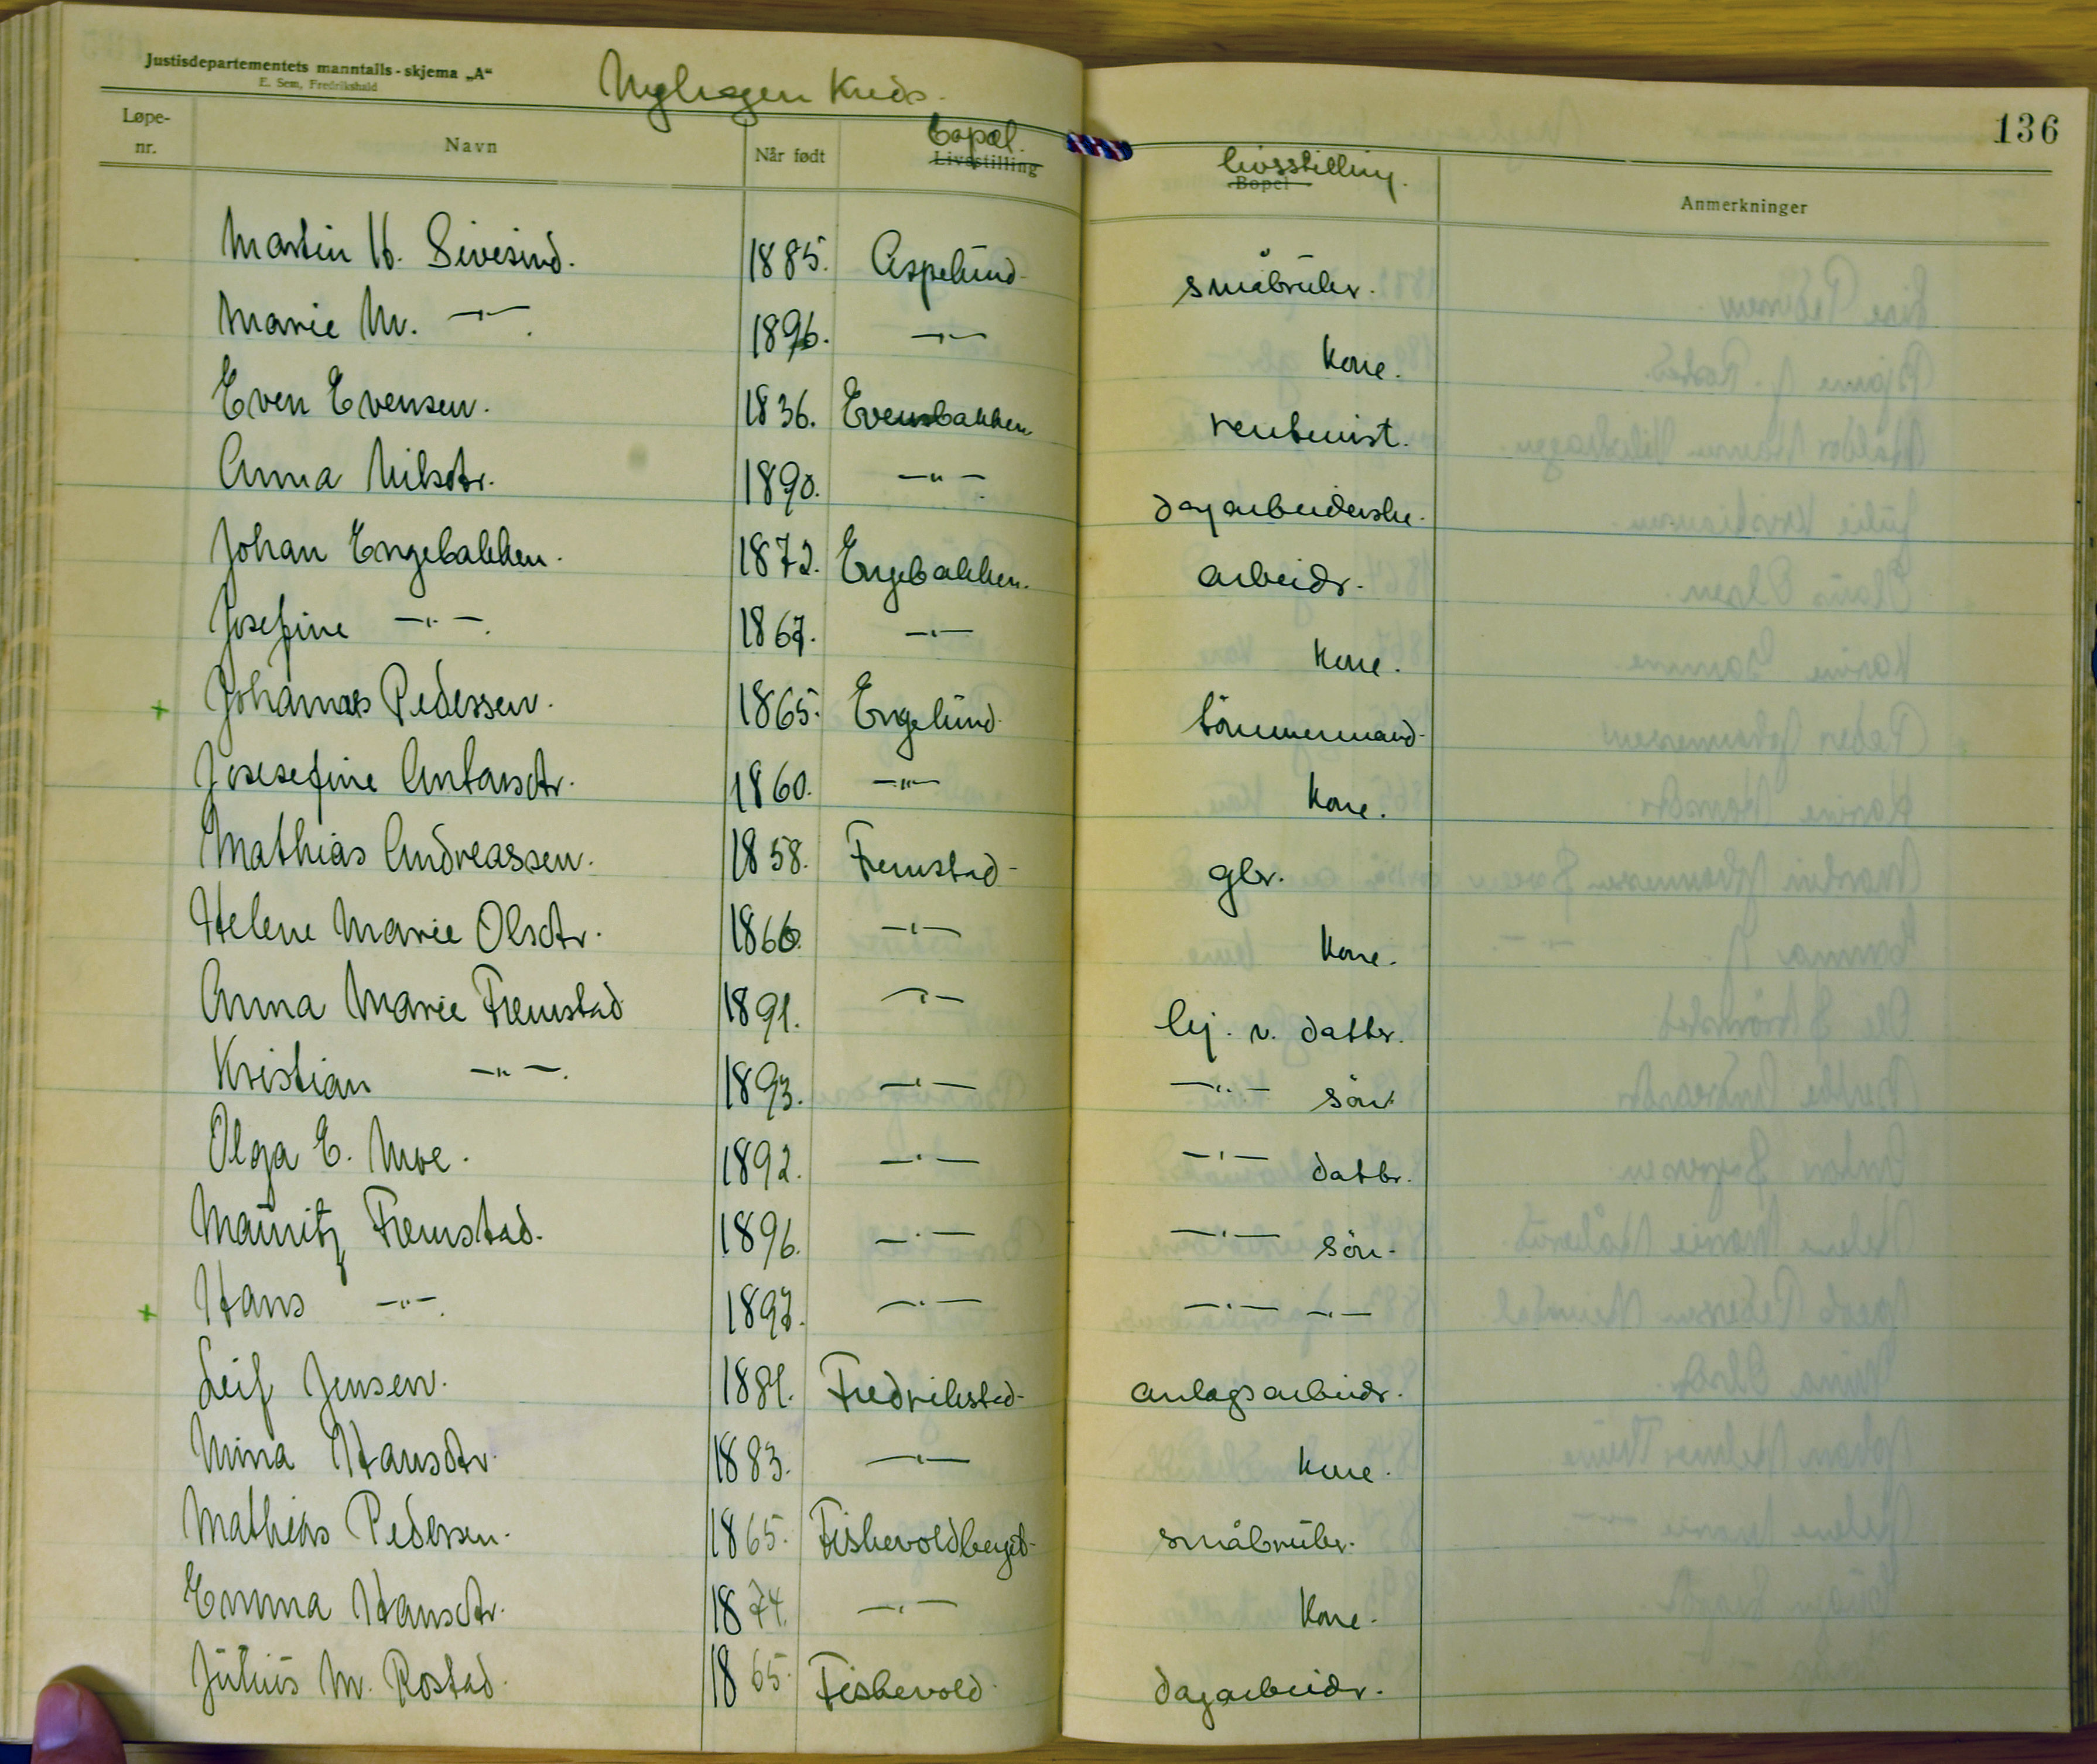 Justisdepartementets manntalls-skjema „A“
E. Sem, Fredrikshald
Nyhagen Kreds.
136
Løpe-nr. Navn Når født Bopæl. Livsstilling livsstilling. Bopel Anmerkninger
Martin H. Sivesind. 1885. Aspelund småbruker.
Marie M. —"— 1896. —"— kone.
Even Evensen. 1836. Evensbakken rentenist.
Anna Nilsdtr. 1890. —"— dagarbeiderske.
Johan Engebakken. 1872. Engebakken. arbeider.
Josefine —"—. 1867. —"— kone.
+ Johannes Pedersen. 1865. Engelund tömmermand.
Josesefine Antonsdtr. 1860. —"— kone.
Mathias Andreassen. 1858. Fremstad gbr.
Helene Marie Olsdtr. 1866. —"— kone.
Anna Marie Fremstad 1891. —"— hj. v. datter.
Kristian —"—. 1893. —"— —"— sön.
Olga E. Moe. 1892. —"— —"— datter.
Mauritz Fremstad. 1896. —"— —"— sön.
+ Hans —"—. 1897. —"— —"— —"—
Leif Jensen. 1881. Fredrikstad anlagsarbeider.
Mina Hansdtr. 1883. —"— kone.
Mathias Pedersen. 1865. Fiskevoldberget småbruker.
Emma Hansdtr. 1874. —"— kone.
Julius M. Rostad. 1865. Fiskevold dagarbeider.